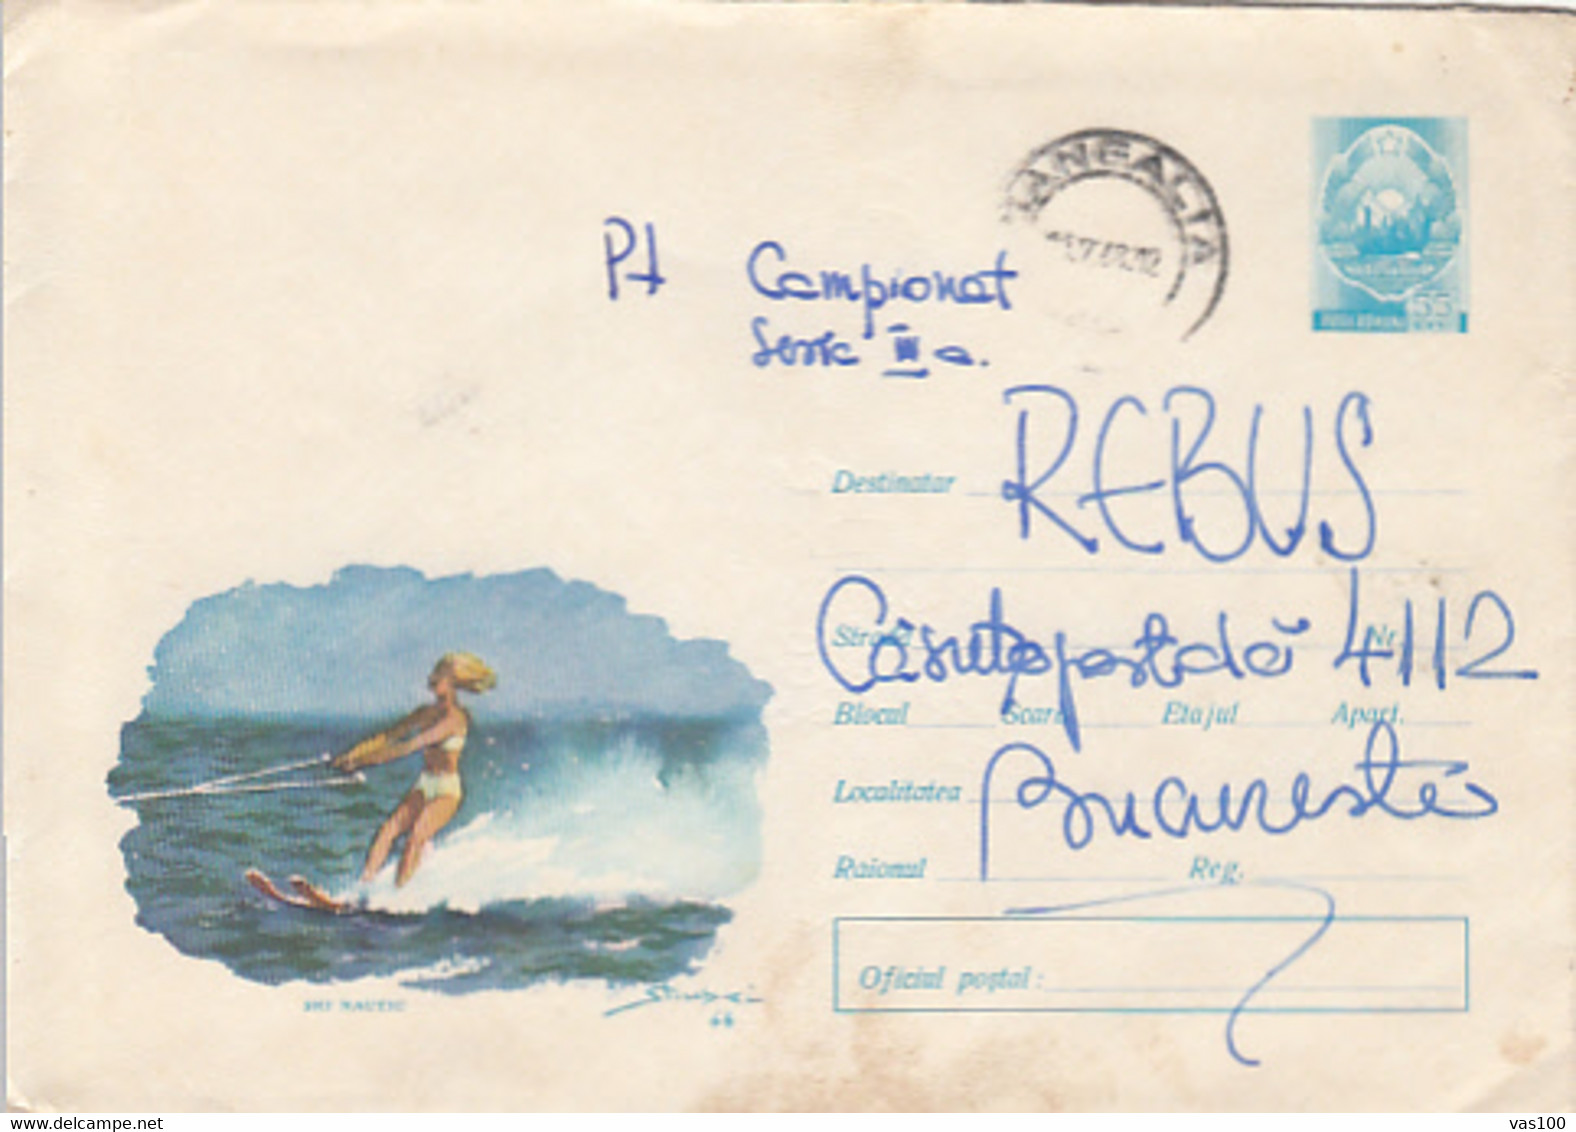 MANGALIA
Pt Campionat
Serie III a.
55
POSTA ROMANA
Destinatar REBUS
Strada Nr.
Căsuța poștală 4112
Blocul Scara Etajul Apart.
Localitatea București
Raionul Reg.
Oficiul poștal:
SKI NAUTIC
66
vas100